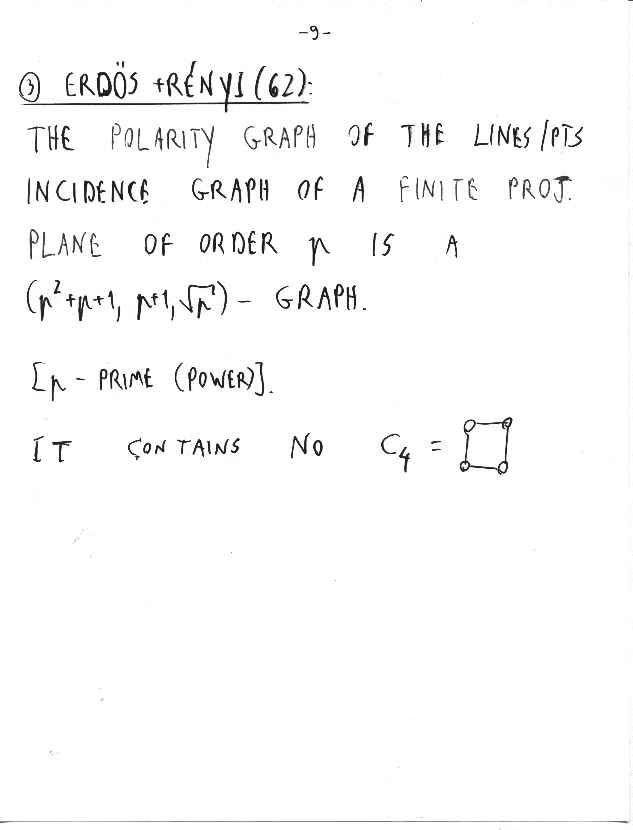 -9-
③ ERDÖS + RÉNYI (62):
THE POLARITY GRAPH OF THE LINES/PTS
INCIDENCE GRAPH OF A FINITE PROJ.
PLANE OF ORDER p IS A
(p²+p+1, p+1, √p) - GRAPH.
[p - PRIME (POWER)].
IT CONTAINS NO C₄ =